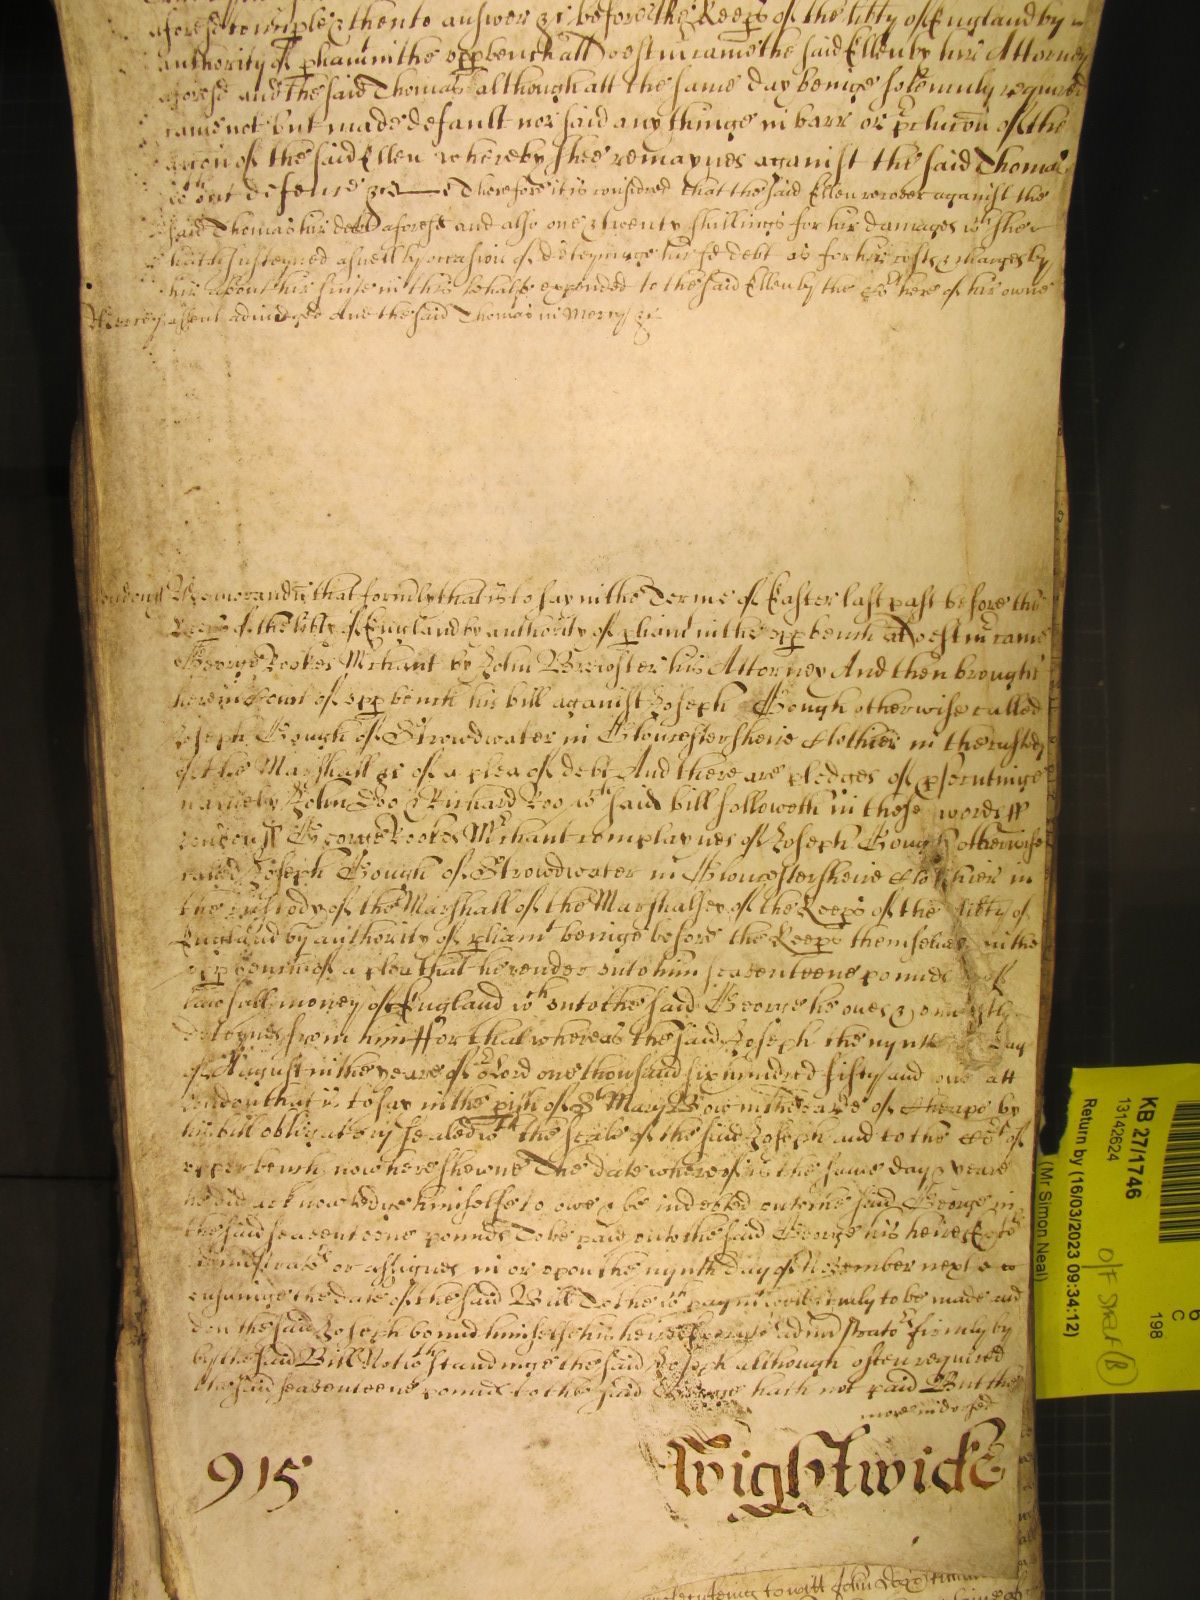 aforesd complt & thento answer &c before the Keeps of the libty of England by
authority of pliamt in the upp bench att Westm came the said Ellen by her Attorney
aforesd and the said Thomas although att the same day beinge solemnly required
came not but made default nor said any thinge in barr or pclucon of the
accon of the said Ellen whereby shee remaynes against the said Thomas
wthout defence &c Therefore it is considred that the said Ellen recover against the
said Thomas her debt aforesd and also one & twenty shillings for her damages wch shee
hath susteyned aswell by occasion of deteyninge her sd debt as for her costs & charges by
her about her suite in this behalfe expended to the said Ellen by the Cort here of her owne
Mercy assent adiudged And the said Thomas in Mercy &c
London ss Memorandu that formly that is to say in the Terme of Easter last past before the
Keeps of the libty of England by authority of pliamt in the upp bench att Westm came
George Cookes Mrchant by John Brewster his Attorney And then brought
here in Court of upp bench his bill against Joseph Gough otherwise called
Joseph Gough of Strowdwater in Gloucestersheire Clothier in the custody
of the Marshall &c of a plea of debt And there are pledges of psecutinge
namely John Doo & Richard Roo wch said bill followeth in these words ss
London ss George Cookes Mrchant complaynes of Joseph Gough otherwise
called Joseph Gough of Strowdwater in Gloucestersheire Clothier in
the custody of the Marshall of the Marshalsey of the Keeps of the libty of
England by authority of pliamt beinge before the Keeps themselves in the
upp bench of a plea that he render unto him seaventeene pounds of
lawfull money of England wch unto the said George he owes & uniustly
deteynes from him ffor that whereas the said Joseph the nynth day
of August in the yeare of or Lord one thousand six hundred fifty and one att
London that is to say in the pish of St Mary Bow in the warde of Cheape by
his bill obligatory sealed wth the seale of the said Joseph and to the Cort of
upper bench now here shewne The date whereof is the same day & yeare
he did acknowledge himselfe to owe & be indebted unto the said George in
the said seaventeene pounds To be paid unto the said George his heires Exrs
administrators or assignes in or upon the nynth day of November next
ensuinge the date of the said Bill To the wch paymt well & truly to be made and
don the said Joseph bound himselfe his heires administrators firmly by
by the said Bill Notwthstandinge the said Joseph although often required
the said seaventeene pounds to the said George hath not paid But the
more indorsed
915 Wightwicke
to witt John Doo
KB 27/1746
13142624
Return by (16/03/2023 09:34:12)
(Mr Simon Neal)
6
C
198
O/F Stret (B)